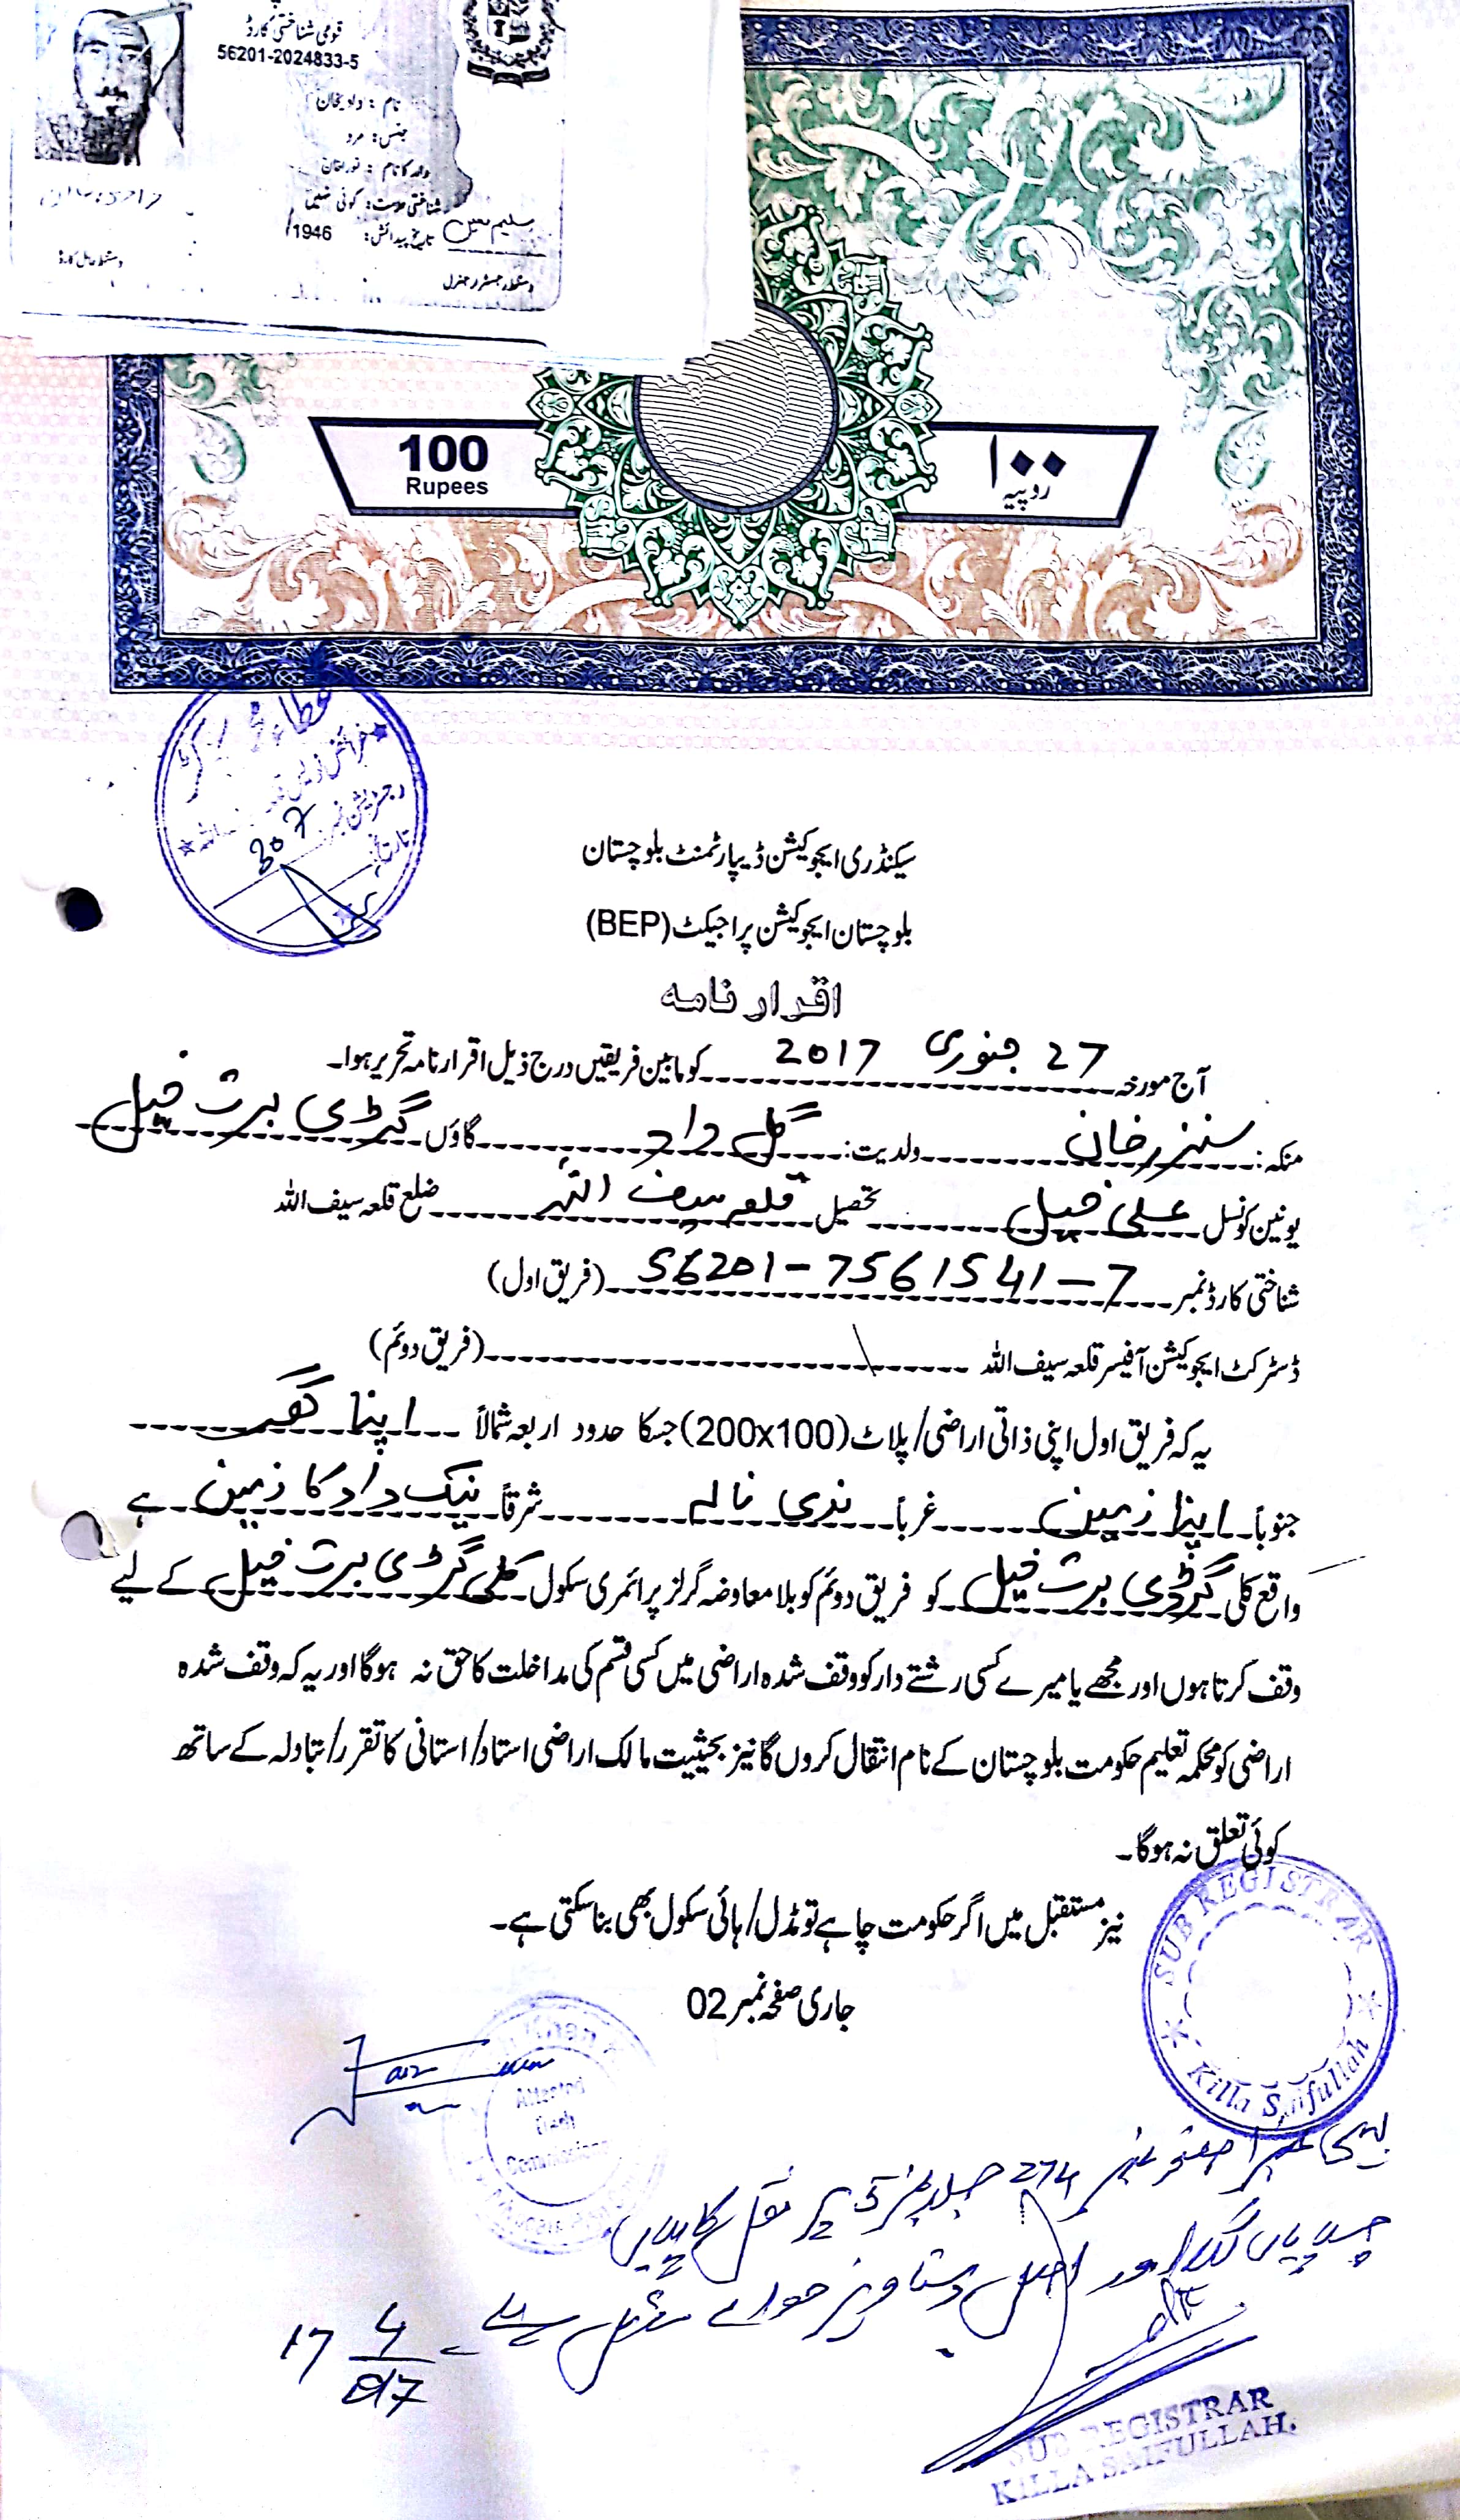 قومی شناختی کارڈ
56201-2024833-5
نام :
جنس: مرد
والد کا نام :
شناختی علامت: کوئی نہیں
تاریخ پیدائش: 1946/
دستخط حامل کارڈ
دستخط رجسٹرار جنرل
100
Rupees
۱۰۰
روپیہ
رجسٹریشن نمبر 307
سیکنڈری ایجوکیشن ڈیپارٹمنٹ بلوچستان
بلوچستان ایجوکیشن پراجیکٹ (BEP)
اقرار نامہ
آج مورخہ 27 جنوری 2017 کو مابین فریقین درج ذیل اقرار نامہ تحریر ہوا۔
منکہ: سنزر خان ولدیت: گل داد گاؤں گڑدی برت خیل
یونین کونسل علی خیل تحصیل قلعہ سیف اللہ ضلع قلعہ سیف اللہ
شناختی کارڈ نمبر 56201-7561541-7 (فریق اول)
ڈسٹرکٹ ایجوکیشن آفیسر قلعہ سیف اللہ (فریق دوئم)
یہ کہ فریق اول اپنی ذاتی اراضی/ پلاٹ (200x100) جسکا حدود اربعہ شمالاً اپنا گھر
جنوباً اپنا زمین غرباً ندی نالہ شرقاً نیک داد کا زمین ہے
واقع کلی گڑدی برت خیل کو فریق دوئم کو بلا معاوضہ گرلز پرائمری سکول کلی گڑدی برت خیل کے لیے
وقف کرتا ہوں اور مجھے یا میرے کسی رشتے دار کو وقف شدہ اراضی میں کسی قسم کی مداخلت کا حق نہ ہوگا اور یہ کہ وقف شدہ
اراضی کو محکمہ تعلیم حکومت بلوچستان کے نام انتقال کروں گا نیز بحیثیت مالک اراضی استاد/ استانی کا تقرر/ تبادلہ کے ساتھ
کوئی تعلق نہ ہوگا۔
نیز مستقبل میں اگر حکومت چاہے تو مڈل/ ہائی سکول بھی بنا سکتی ہے۔
جاری صفحہ نمبر 02
SUB REGISTRAR
Killa Saifullah
Khan
Attested
Oath
Commissioner
صفحہ نمبر 274 جلد نمبر
اور اصل دستاویز حوالے
17 4/017
SUB REGISTRAR
KILLA SAIFULLAH.